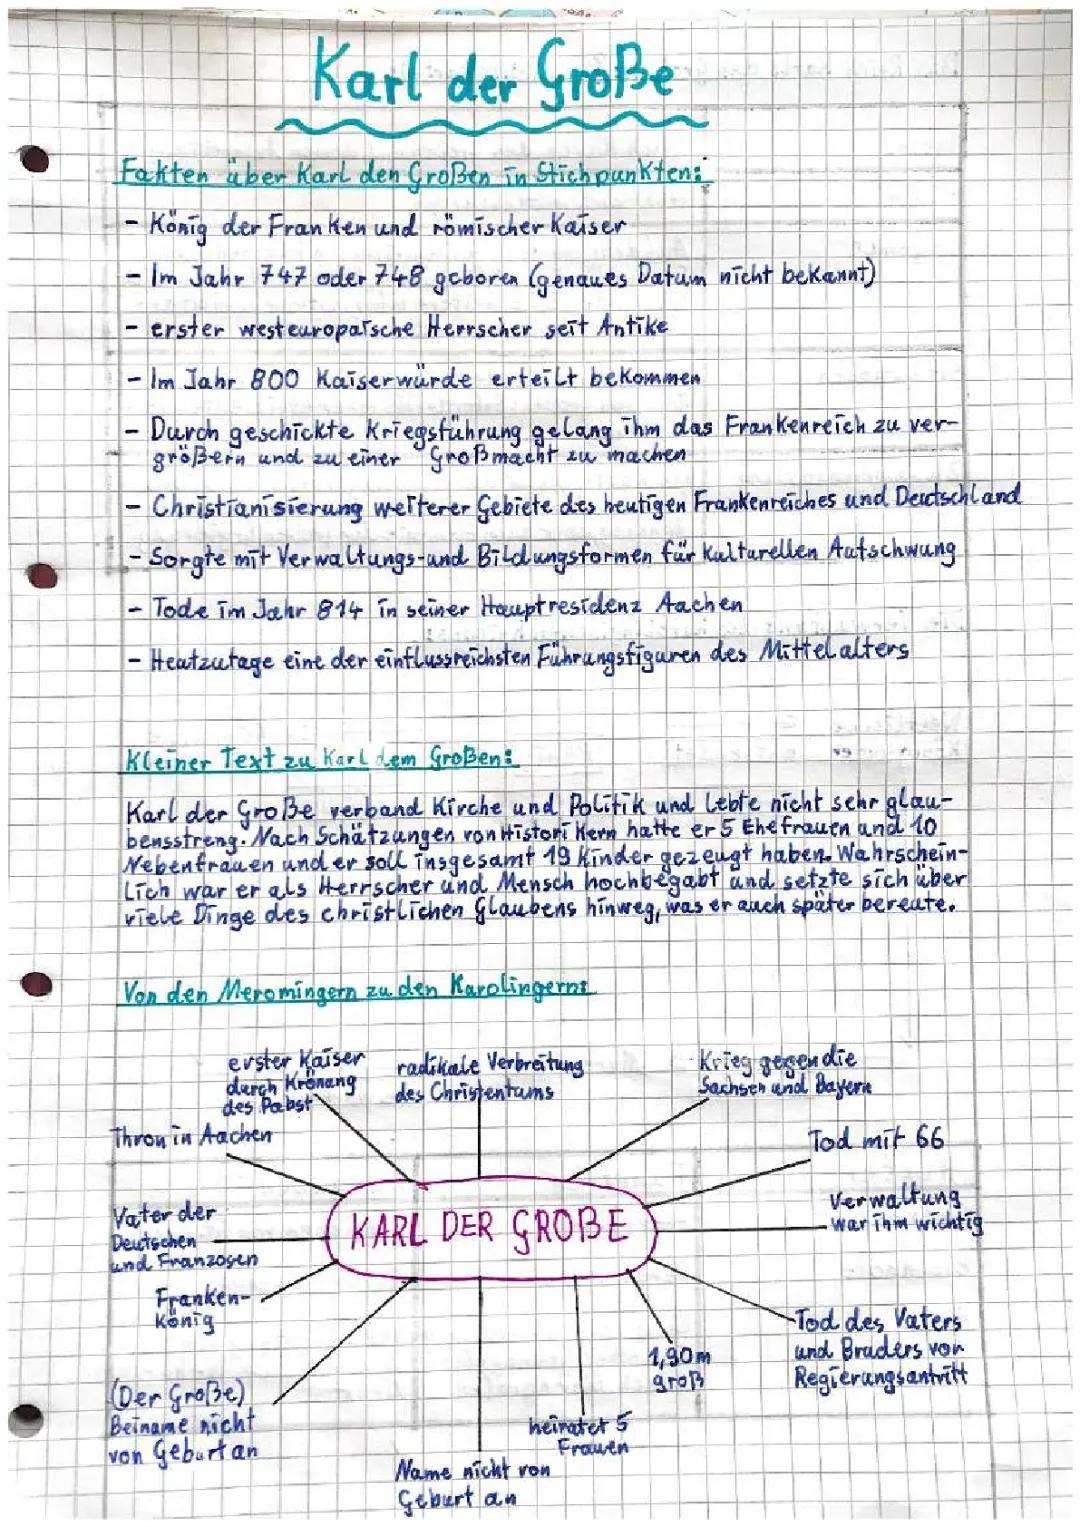 Karl der Große
Fakten über Karl den Großen in Stichpunkten:
- König der Franken und römischer Kaiser
- Im Jahr 747 oder 748 geboren (genaues Datum nicht bekannt)
- erster westeuropaische Herrscher seit Antike
- Im Jahr 800 Kaiserwürde erteilt bekommen
- Durch geschickte Kriegsführung gelang ihm das Frankenreich zu ver-
größern und zu einer Großmacht zu machen
- Christianisierung weiterer Gebiete des heutigen Frankenreiches und Deutschland
- Sorgte mit Verwaltungs-und Bildungsformen für kulturellen Aufschwung
- Tode im Jahr 814 in seiner Hauptresidenz Aachen
- Heutzutage eine der einflussreichsten Führungsfiguren des Mittelalters
Kleiner Text zu Karl dem Großen:
Karl der Große verband Kirche und Politik und lebte nicht sehr glau-
bensstreng. Nach Schätzungen von Historikern hatte er 5 Ehefrauen und 10
Nebenfrauen und er soll insgesamt 19 Kinder gezeugt haben. Wahrschein-
lich war er als Herrscher und Mensch hochbegabt und setzte sich über
viele Dinge des christlichen Glaubens hinweg, was er auch später bereute.
Von den Meromingern zu den Karolingern:
erster Kaiser
durch Krönung
des Pabst
radikale Verbreitung
des Christentums
Krieg gegen die
Sachsen und Bayern
Thron in Aachen
Tod mit 66
Vater der
Deutschen
und Franzosen
KARL DER GROßE
Verwaltung
war ihm wichtig
Franken-
könig
Tod des Vaters
und Bruders vor
Regierungsantritt
1,90m
groß
(Der Große)
Beiname nicht
von Geburt an
heiratet 5
Frauen
Name nicht von
Geburt an